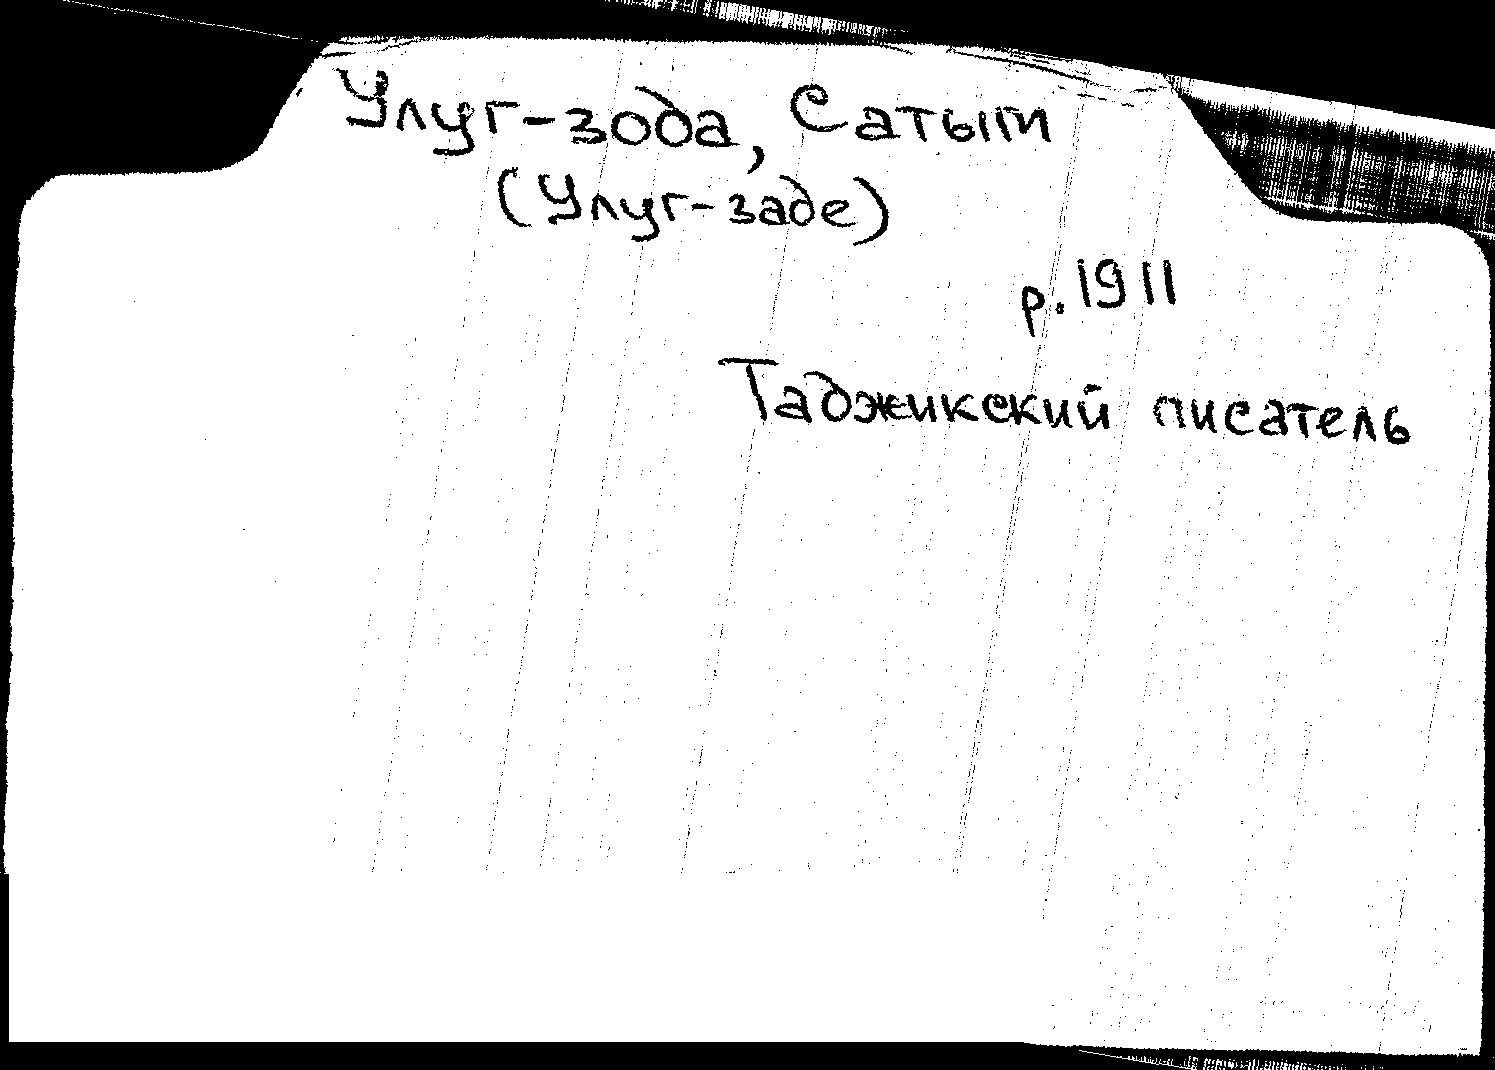 Улуг-зода, Сатым
(Улуг-заде)
р. 1911
Таджикский писатель